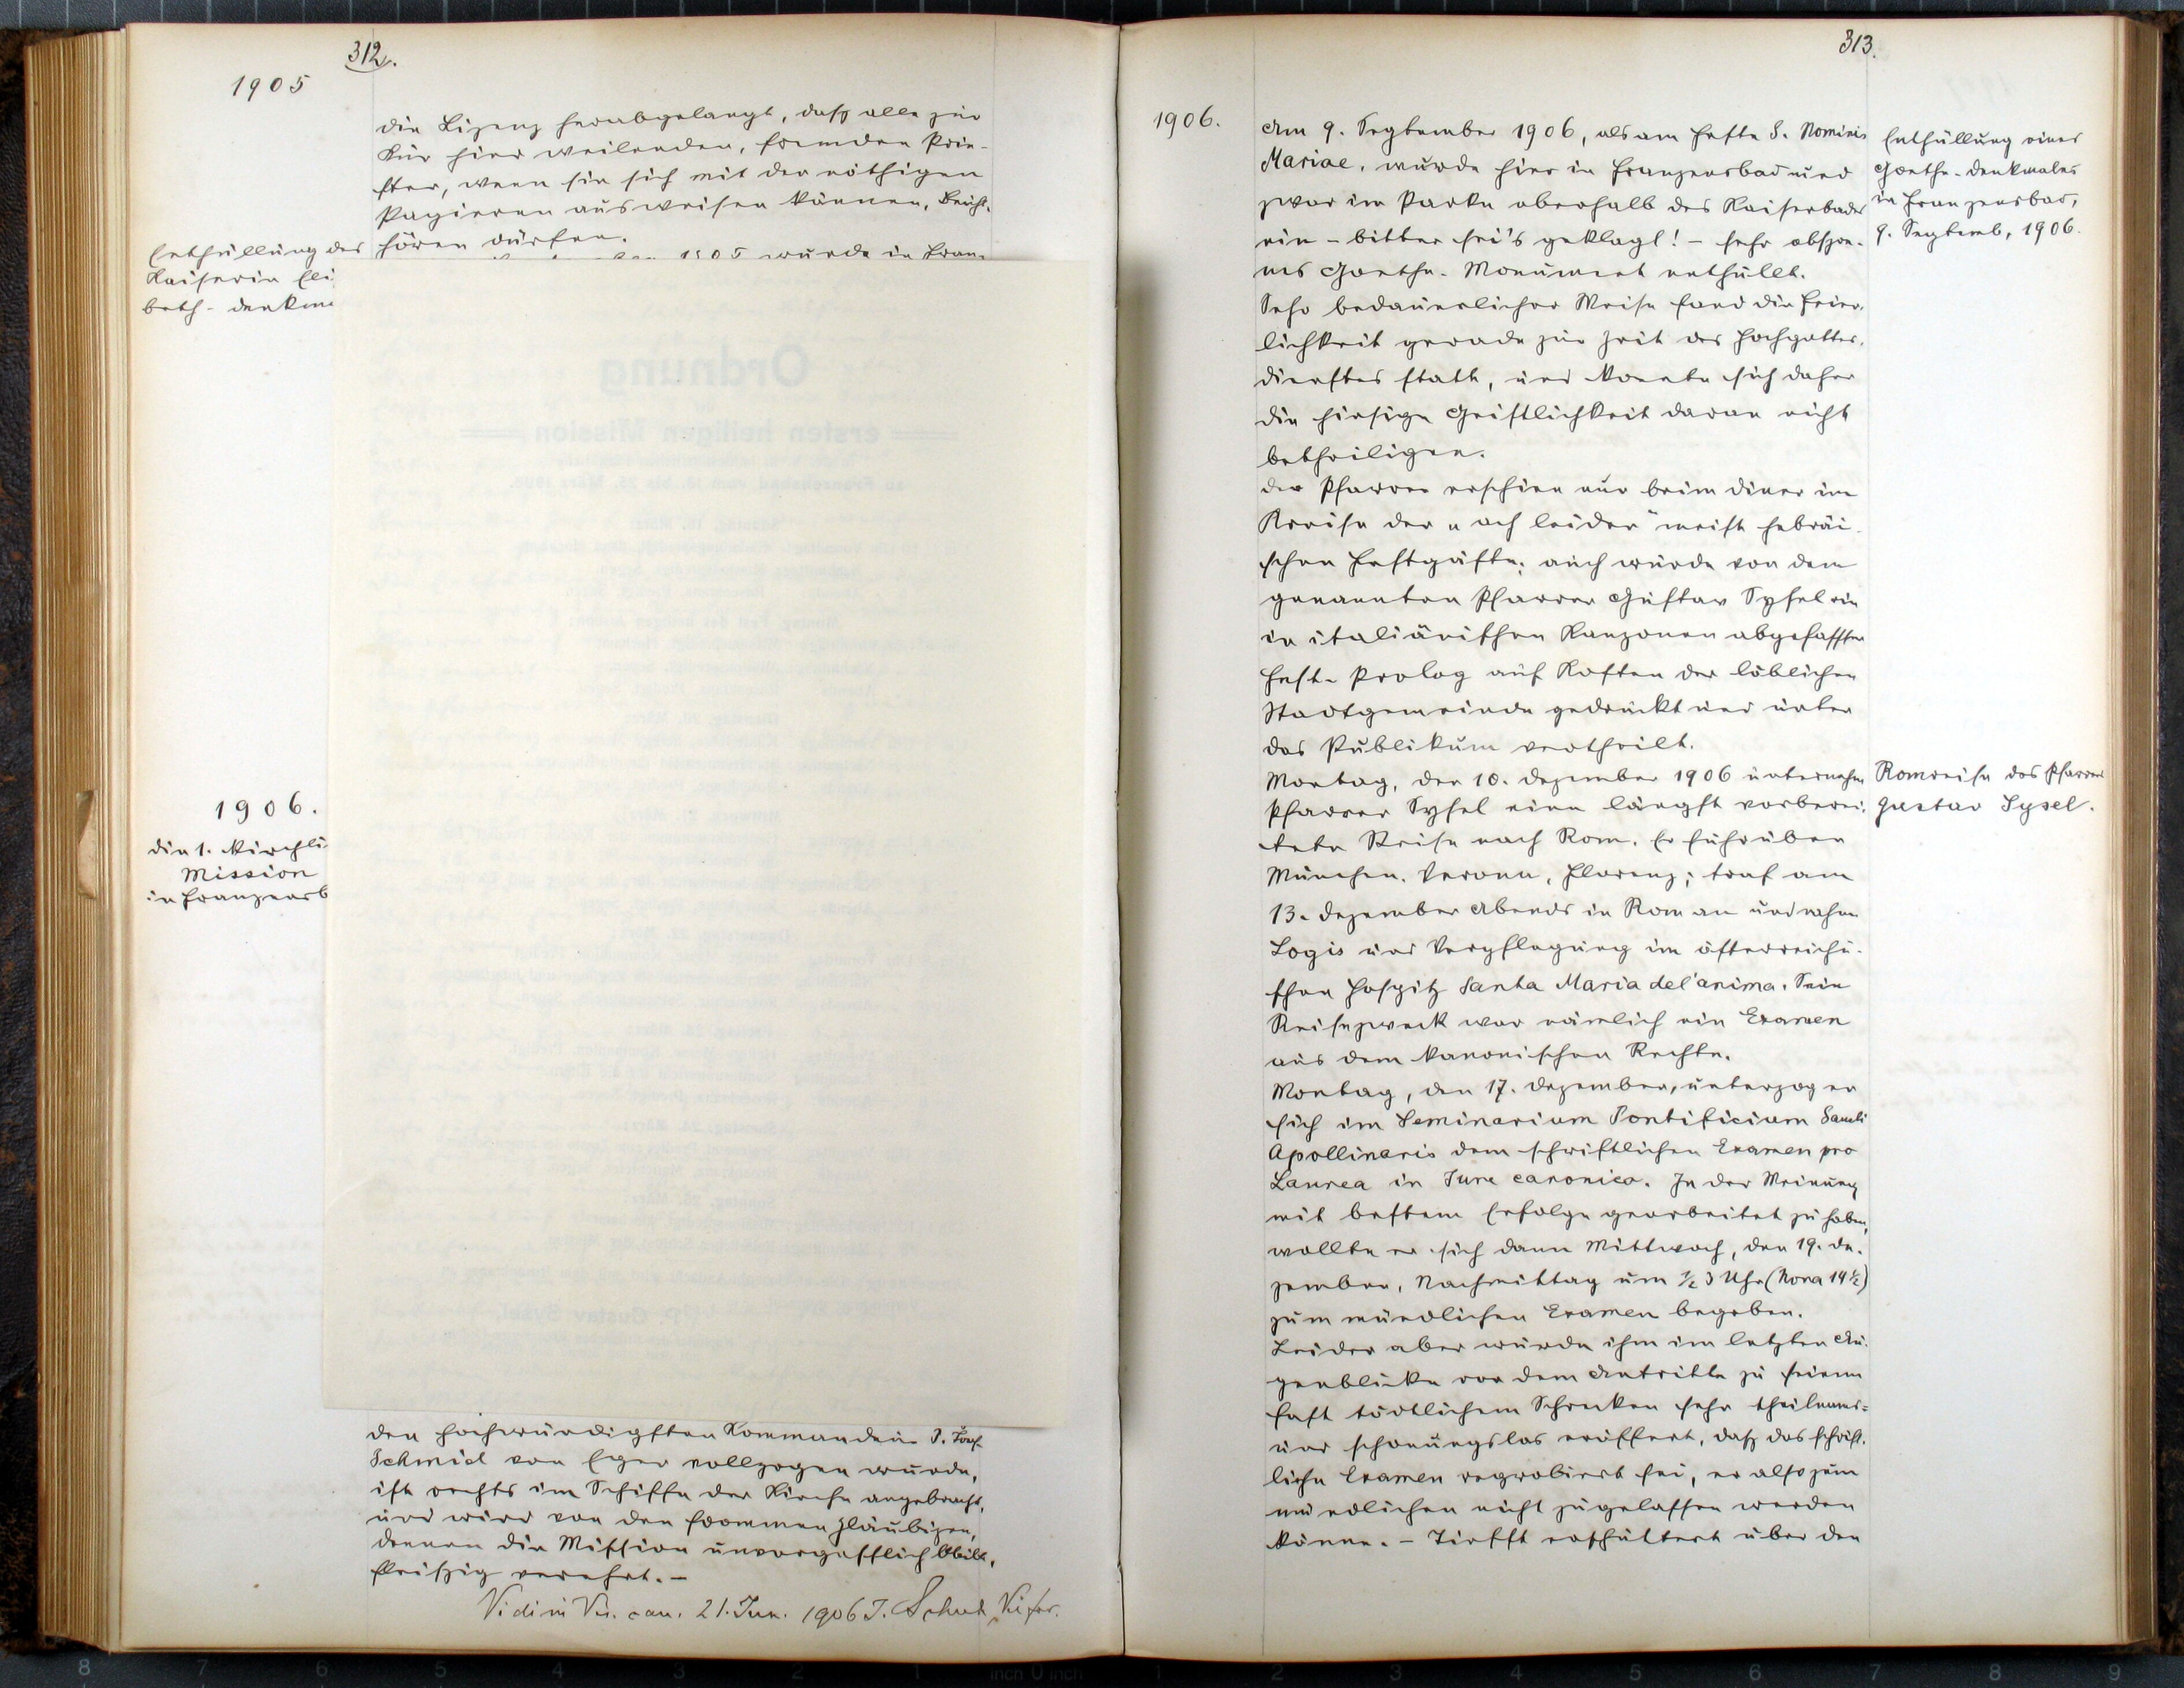 312.
1905
die Lizenz herabgelangt, daß alle zur
Kur hier weilenden, fremden Prie-
ster, wenn sie sich mit den nöthigen
Papieren ausweisen können, Beicht-
hören dürfen.
1905 wurde in Fran-
Enthüllung des
Kaiserin Eli
beth-Denkm
1906.
Die 1. kirchli
Mission
in Franzensb
den hochwürdigsten Kommandeur P. Josef
Schmid von Eger vollzogen wurde,
ist rechts im Schiffe der Kirche angebracht,
und wird von den frommen Gläubigen,
denen die Mission unvergesslich bleibt,
fleißig verehrt. –
Vidi in Vis. can. 21. Jun. 1906 J.
313.
1906.
Am 9. September 1906, als am Feste S. Nominis
Mariae, wurde hier in Franzensbad und
zwar im Parke oberhalb des Kaiserbades
ein – bitter sei's geklagt! – sehr obszö-
nes Goethe-Monument enthüllt.
Sehr bedauerlicher Weise fand die Feier-
lichkeit gerade zur Zeit des Hochgottes-
dienstes statt, und konnte sich daher
die hiesige Geistlichkeit daran nicht
betheiligen.
Der Pfarrer erschien nur beim Diner im
Kreise der „ach leider" meist hebräi-
schen Festgäste; auch wurde von dem
genannten Pfarrer Gustav Sysel ein
in italiänischen Kanzonen abgefasster
Fest-Prolog auf Kosten der löblichen
Stadtgemeinde gedruckt und unter
das Publikum vertheilt.
Montag, den 10. Dezember 1906 unternahm
Pfarrer Sysel eine längst vorberei-
tete Reise nach Rom. Er fuhr über
München, Verona, Florenz; traf am
13. Dezember Abends in Rom an und nahm
Logis und Verpflegung im österreichi-
schen Hospitz Santa Maria del'anima. Sein
Reisezweck war nämlich ein Examen
aus dem kanonischen Rechte.
Montag, den 17. Dezember, unterzog er
sich im Seminarium Pontificium Sancti
Apollinaris dem schriftlichen Examen pro
Laurea in Jure canonico. In der Meinung
mit bestem Erfolge gearbeitet zu haben,
wollte er sich dann Mittwoch, den 19. De-
zember, Nachmittag um ½ 3 Uhr (hora 14½)
zum mündlichen Examen begeben.
Leider aber wurde ihm im letzten Au-
genblicke vor dem Antritte zu seinem
fast tödtlichem Schrecken sehr theilnams-
und schonungslos eröffnet, daß das schrift-
liche Examen reprobiert sei, er also zum
mündlichen nicht zugelassen werden
könne. – Tiefst erschüttert über den
Enthüllung eines
Goethe-Denkmales
in Franzensbad,
9. Septemb. 1906.
Romreise des Pfarrers
Gustav Sysel.
Ordnung
ersten heiligen Mission
zu Franzensbad vom 18. bis 25. März 1906.
P. Gustav Sysel.